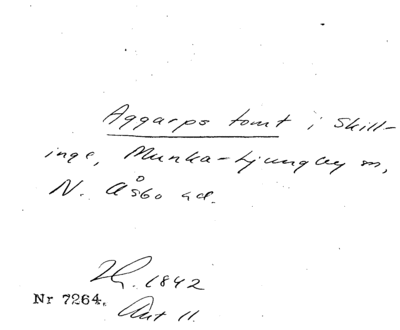 Aggarps tomt i Skill-
inge, Munka-Ljungby sn,
N. Åsbo hd.
1842
Nr 7264. Akt 11.